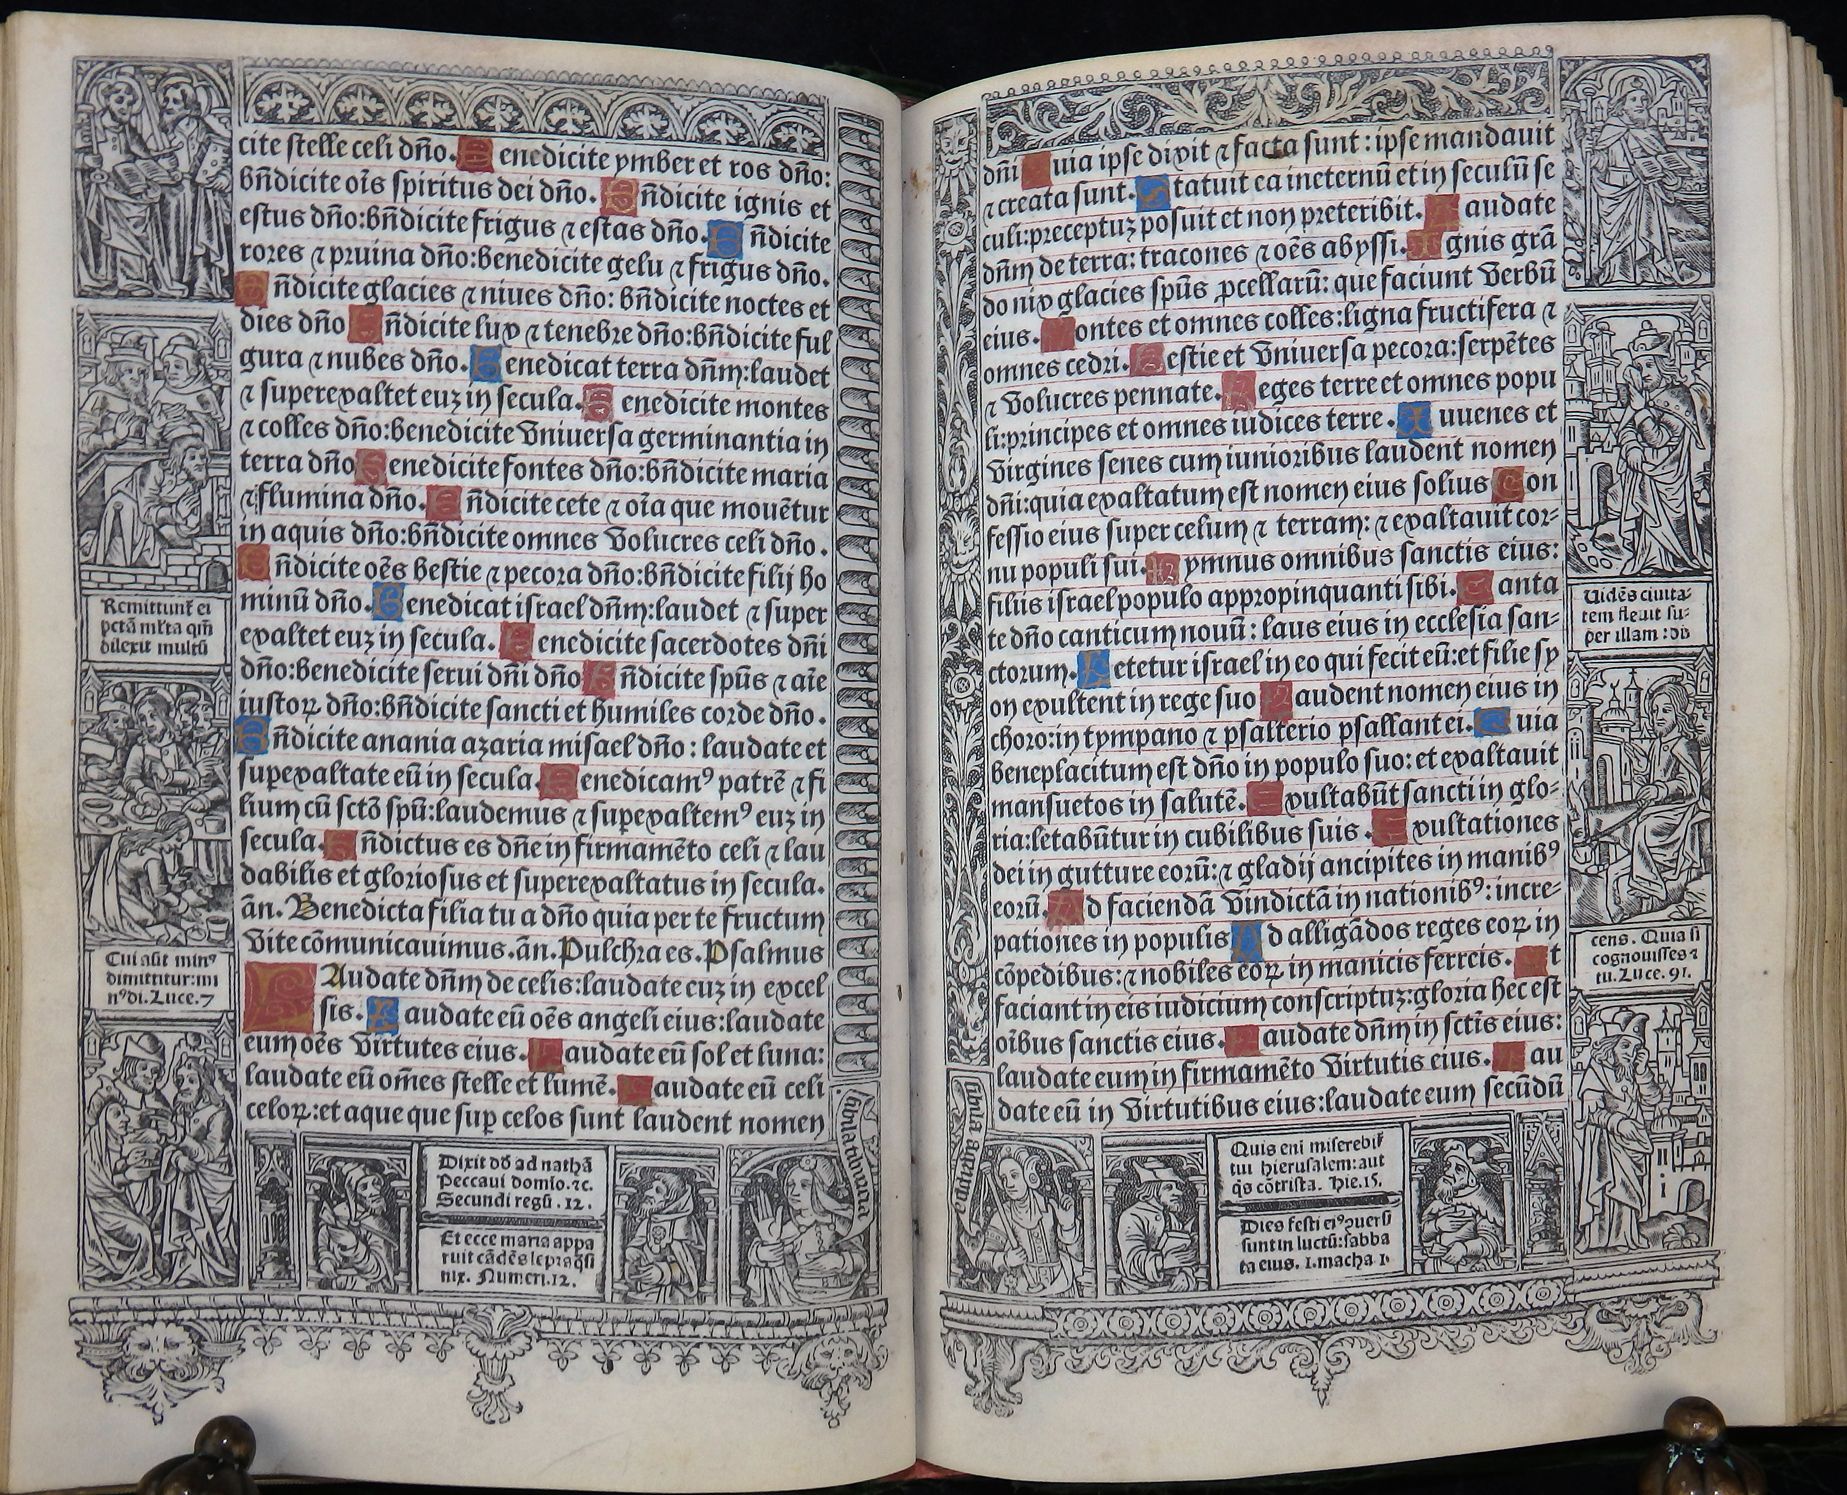 cite stelle celi dño. Benedicite ymber et ros dño:
bñdicite oĩs spiritus dei dño. Bñdicite ignis et
estus dño:bñdicite frigus ⁊ estas dño. Bñdicite
rores ⁊ pruina dño:benedicite gelu ⁊ frigus dño.
Bñdicite glacies ⁊ niues dño: bñdicite noctes et
dies dño Bñdicite lux ⁊ tenebre dño:bñdicite ful
gura ⁊ nubes dño. Benedicat terra dñm:laudet
⁊ superexaltet euꝫ in secula. Benedicite montes
⁊ colles dño:benedicite Vniuersa germinantia in
terra dño Benedicite fontes dño:bñdicite maria
⁊ flumina dño. Bñdicite cete ⁊ oĩa que mouẽtur
in aquis dño:bñdicite omnes Volucres celi dño.
Bñdicite oẽs bestie ⁊ pecora dño:bñdicite filij ho
minũ dño. Benedicat israel dñm:laudet ⁊ super
exaltet euꝫ in secula. Benedicite sacerdotes dñi
dño:benedicite serui dñi dño Bñdicite spũs ⁊ aĩe
iustoꝝ dño:bñdicite sancti et humiles corde dño.
Bñdicite anania azaria misael dño: laudate et
superexaltate eũ in secula. Benedicamꝰ patrẽ ⁊ fi
lium cũ sctõ spũ:laudemus ⁊ superexaltemꝰ euꝫ in
secula. Bñdictus es dñe in firmamẽto celi ⁊ lau
dabilis et gloriosus et superexaltatus in secula.
añ. Benedicta filia tu a dño quia per te fructum
Vite cõmunicauimus. añ. Pulchra es. Psalmus
LAudate dñm de celis:laudate euꝫ in excel
sis. Laudate eũ oẽs angeli eius:laudate
eum oẽs Virtutes eius. Laudate eũ sol et luna:
laudate eũ om̃es stelle et lumẽ. Laudate eũ celi
celoꝝ:et aque que sup̱ celos sunt laudent nomen
Remittunt̃ ei
pctã ml̃ta qm̃
dilexit multũ
Cui aũt minꝰ
dimittitur:mi
nꝰ di. Luce.7
Dixit dd̃ ad nathã
Peccaui domĩo.⁊c.
Secundi regũ .12.
Et ecce maria appa
ruit cãdẽs lepra q̃si
nix. Numeri.12.
dñi Quia ipse dixit ⁊ facta sunt: ipse mandauit
⁊ creata sunt. Statuit ea in eternũ et in seculũ se
culi:preceptuꝫ posuit et non preteribit. Laudate
dñm de terra: tracones ⁊ oẽs abyssi. Ignis grã
do nix glacies spũs ꝓcellarũ: que faciunt Verbũ
eius. Montes et omnes colles:ligna fructifera ⁊
omnes cedri. Bestie et Vniuersa pecora:serpẽtes
⁊ Volucres pennate. Reges terre et omnes popu
li:principes et omnes iudices terre. Iuuenes et
Virgines senes cum iunioribus laudent nomen
dñi:quia exaltatum est nomen eius solius Con
fessio eius super celum ⁊ terram: ⁊ exaltauit cor-
nu populi sui. Hymnus omnibus sanctis eius:
filiis israel populo appropinquanti sibi. Canta
te dño canticum nouũ: laus eius in ecclesia san-
ctorum. Letetur israel in eo qui fecit eũ:et filie sy
on exultent in rege suo Laudent nomen eius in
choro:in tympano ⁊ psalterio psallant ei. Quia
beneplacitum est dño in populo suo: et exaltauit
mansuetos in salutẽ. Exultabũt sancti in glo-
ria:letabũtur in cubilibus suis. Exultationes
dei in gutture eorũ:⁊ gladij ancipites in manibꝰ
eorũ. Ad faciendã Vindictã in nationibꝰ: incre-
pationes in populis Ad alligãdos reges eoꝝ in
cõpedibus:⁊ nobiles eoꝝ in manicis ferreis. Ut
faciant in eis iudicium conscriptuꝫ:gloria hec est
oĩbus sanctis eius. Laudate dñm in sctĩs eius:
laudate eum in firmamẽto Virtutis eius. Lau
date eũ in Virtutibus eius:laudate eum secũdũ
Uidẽs ciuita-
tem fleuit su-
per illam: di
cens. Quia si
cognouisses ⁊
tu. Luce.91.
Quis eni miserebit̃
tui hierusalem:aut
q̃s cõtrista. Hie.15.
Dies festi eiꝰ ꝯuersi
sunt in luctũ:sabba
ta eius. 1.macha 1.